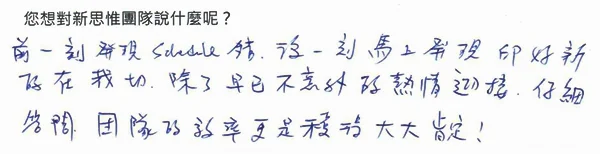 您想對新思惟團隊說什麼呢?
前一刻發現 schedule 錯,後一刻馬上發現印好新
的在我切,除了早已不意外的熱情迎接,仔細
答問,團隊的效率更是積沿大大肯定!